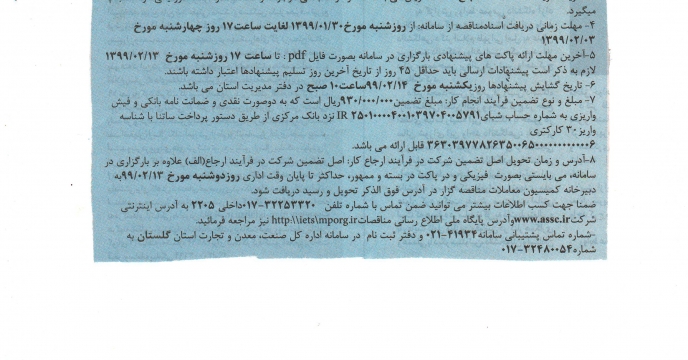 میگیرد.
۴- مهلت زمانی دریافت اسنادمناقصه از سامانه: از روزشنبه مورخ۱۳۹۹/۰۱/۳۰ لغایت ساعت۱۷ روز چهارشنبه مورخ
۱۳۹۹/۰۲/۰۳
۵-آخرین مهلت ارائه پاکت های پیشنهادی بارگزاری در سامانه بصورت فایل pdf : تا ساعت ۱۷ روزشنبه مورخ ۱۳۹۹/۰۲/۱۳
لازم به ذکر است پیشنهادات ارسالی باید حداقل ۴۵ روز از تاریخ آخرین روز تسلیم پیشنهادها اعتبار داشته باشند.
۶- تاریخ گشایش پیشنهادها روزیکشنبه مورخ ۹۹/۰۲/۱۴ساعت۱۰ صبح در دفتر مدیریت استان می باشد.
۷- مبلغ و نوع تضمین فرآیند انجام کار: مبلغ تضمین۹۳۰/۰۰۰/۰۰۰ریال است که به دوصورت نقدی و ضمانت نامه بانکی و فیش
واریزی به شماره حساب شبای IR ۲۵۰۱۰۰۰۰۴۰۰۱۰۳۹۷۰۴۰۰۵۷۹۱ نزد بانک مرکزی از طریق دستور پرداخت ساتنا با شناسه
واریز ۳۰ کارکتری
۳۶۳۰۳۹۷۷۸۲۶۳۵۰۰۶۵۰۰۰۰۰۰۰۰۰۰۰۰۶ قابل ارائه می باشد.
۸-آدرس و زمان تحویل اصل تضمین شرکت در فرآیند ارجاع کار: اصل تضمین شرکت در فرآیند ارجاع(الف) علاوه بر بارگزاری در
سامانه، می بایستی بصورت فیزیکی و در پاکت در بسته و ممهور، حداکثر تا پایان وقت اداری روزدوشنبه مورخ ۹۹/۰۲/۱۳به
دبیرخانه کمیسیون معاملات مناقصه گزار در آدرس فوق الذکر تحویل و رسید دریافت شود.
ضمنا جهت کسب اطلاعات بیشتر می توانید ضمن تماس با شماره تلفن ۰۱۷-۳۲۲۵۳۳۲۰داخلی ۲۲۰۵ به آدرس اینترنتی
شرکت www.assc.ir وآدرس پایگاه ملی اطلاع رسانی مناقصات http:\\iets\mporg.ir نیز مراجعه فرمائید.
-شماره تماس پشتیبانی سامانه۴۱۹۳۴-۰۲۱ و دفتر ثبت نام در سامانه اداره کل صنعت، معدن و تجارت استان گلستان به
شماره۳۲۴۸۰۰۵۴-۰۱۷